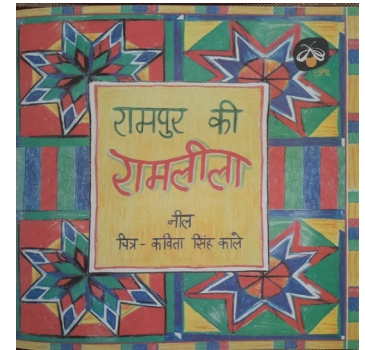 रामपुर की
रामलीला
नील
चित्र - कविता सिंह काले